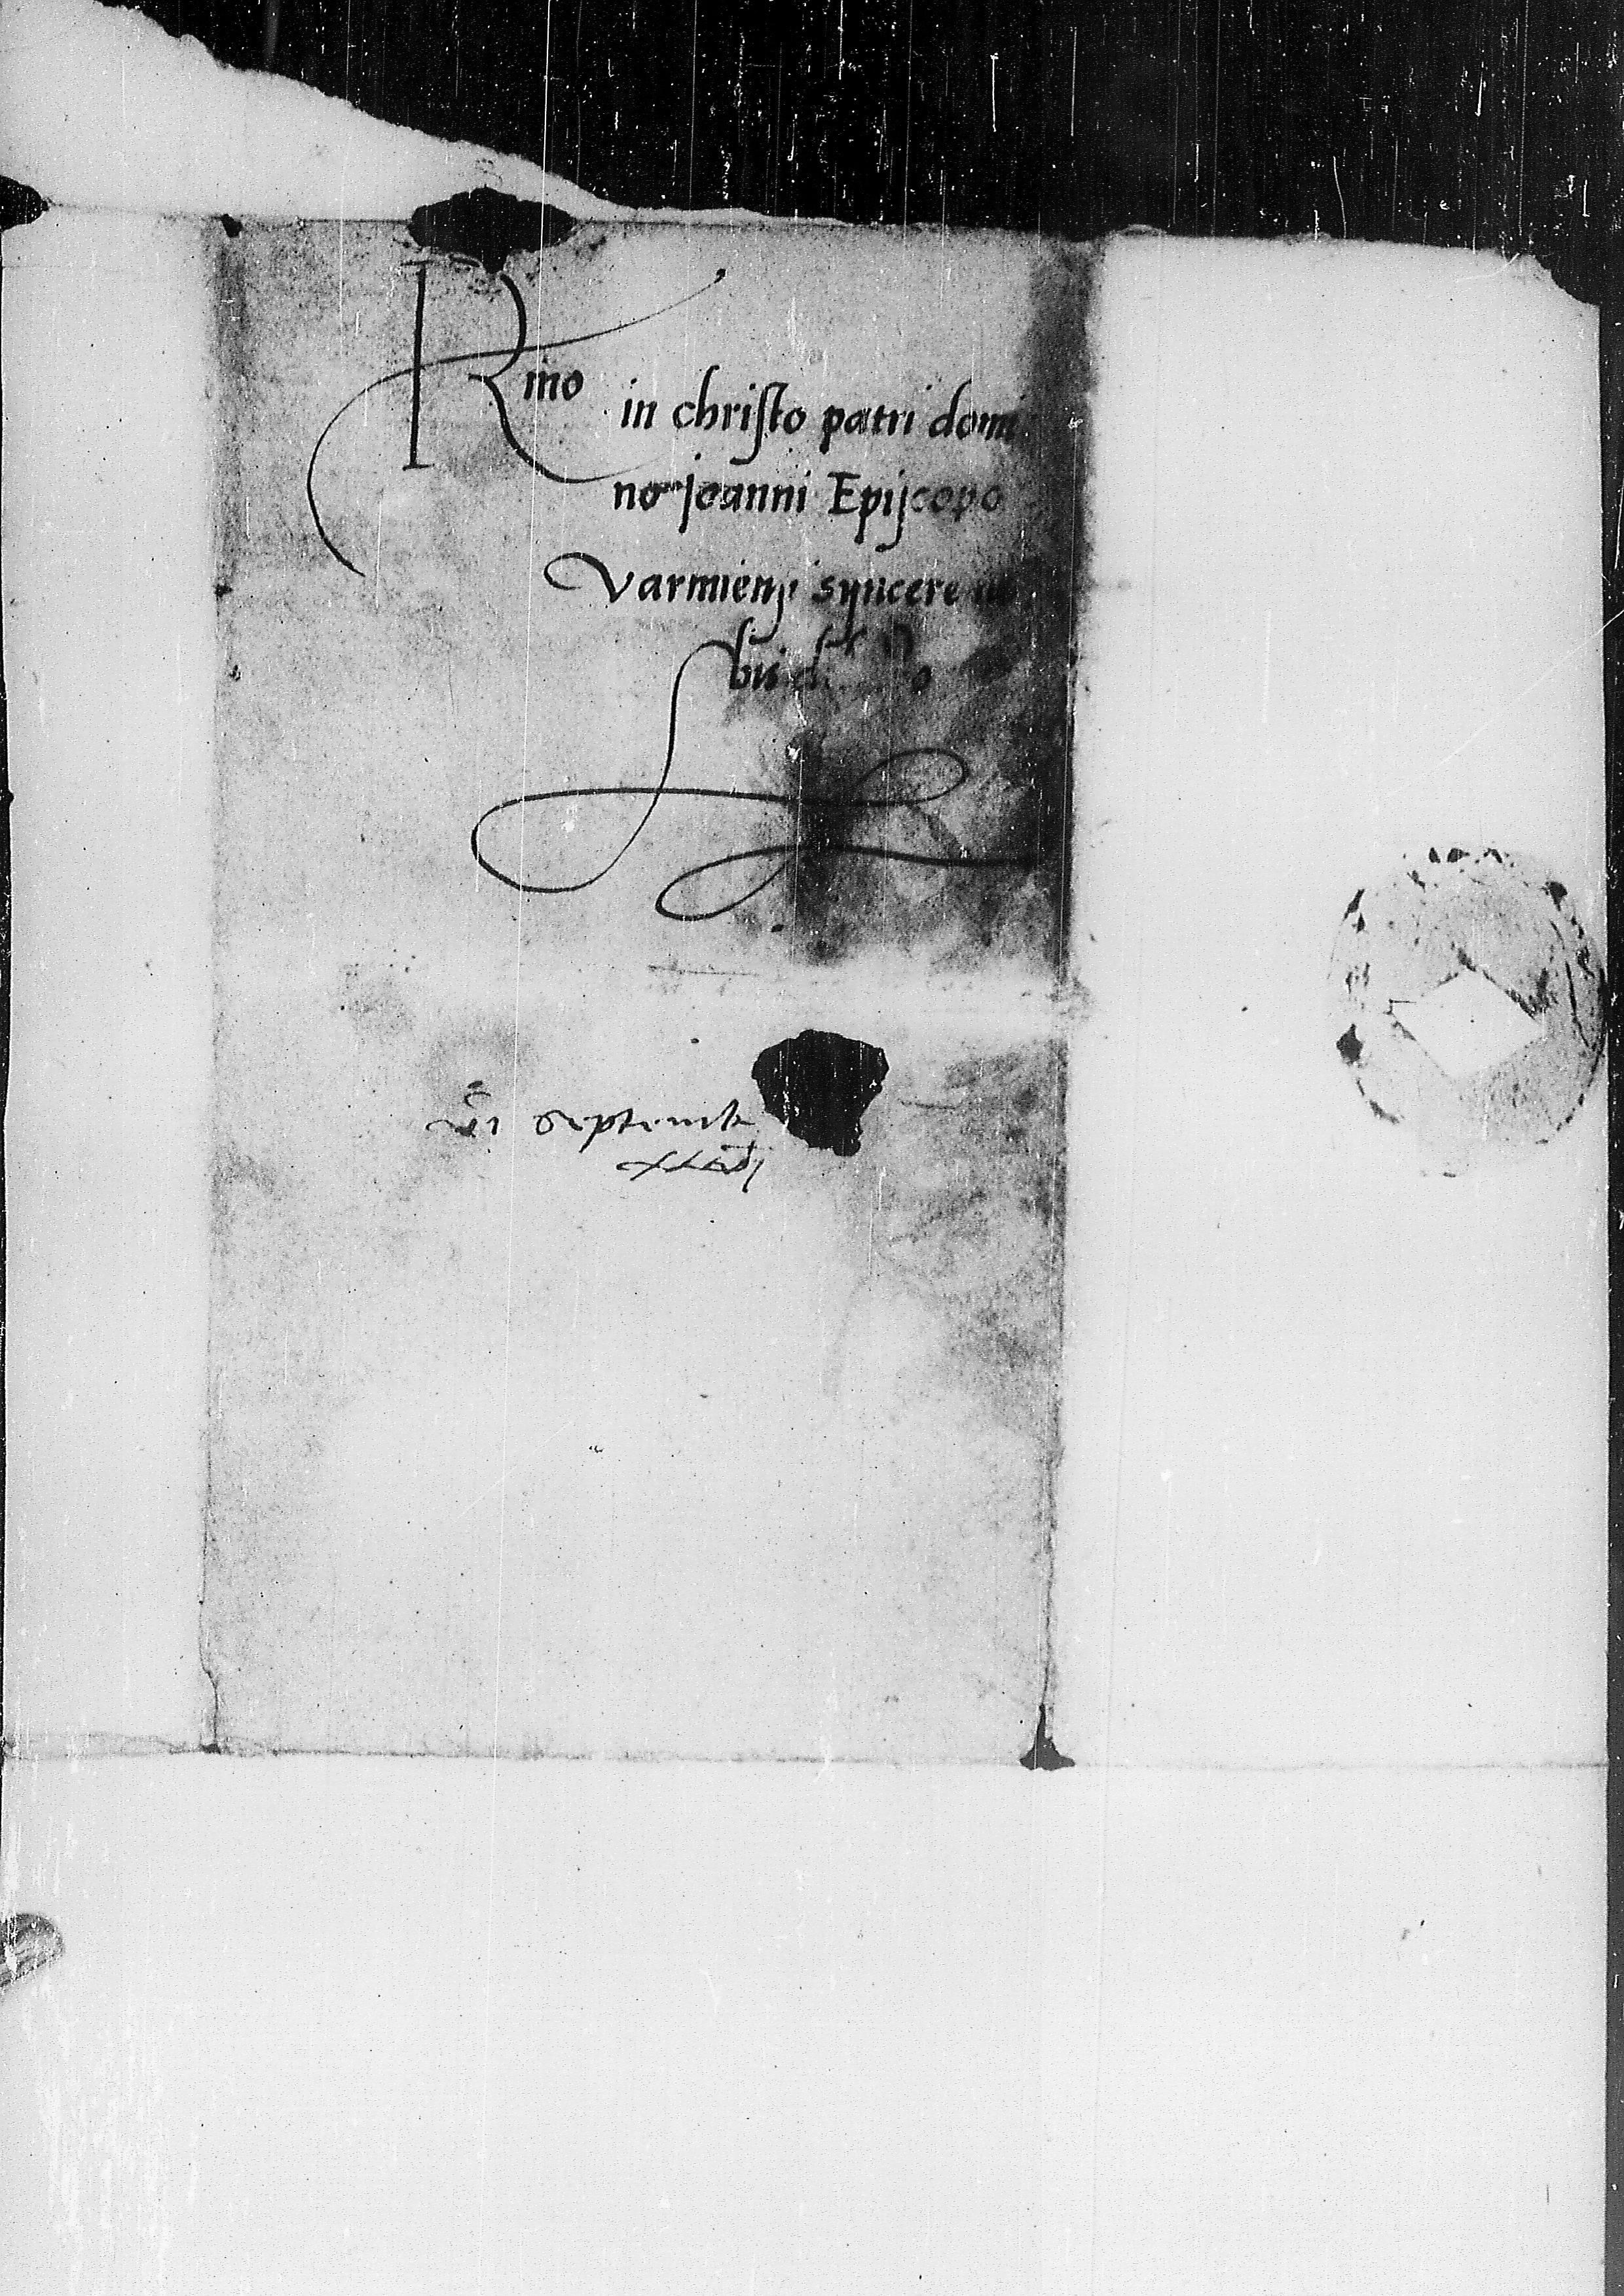 Rmo in christo patri domi
no Joanni Episcopo
Varmiensi syncere no
bis
VI Septemb